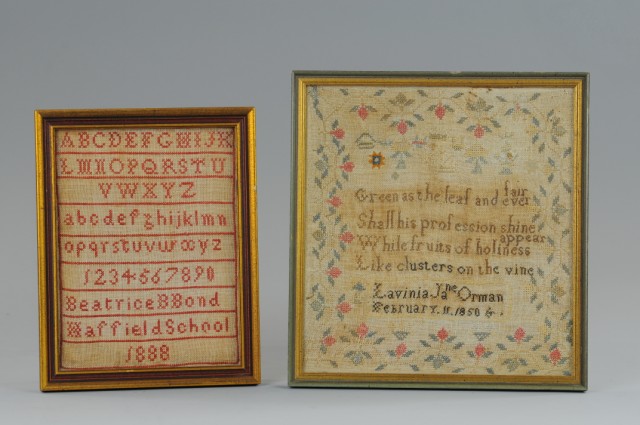 ABCDEFGHIJK
LMNOPQRSTU
VWXYZ
abcdefghijklmn
opqrstuvwxyz
1234567890
Beatrice B Bond
Haffield School
1888
Green as the leaf and fair
ever
Shall his profession shine
While fruits of holiness appear
Like clusters on the vine
Lavinia Jane Orman
February. 11. 1850